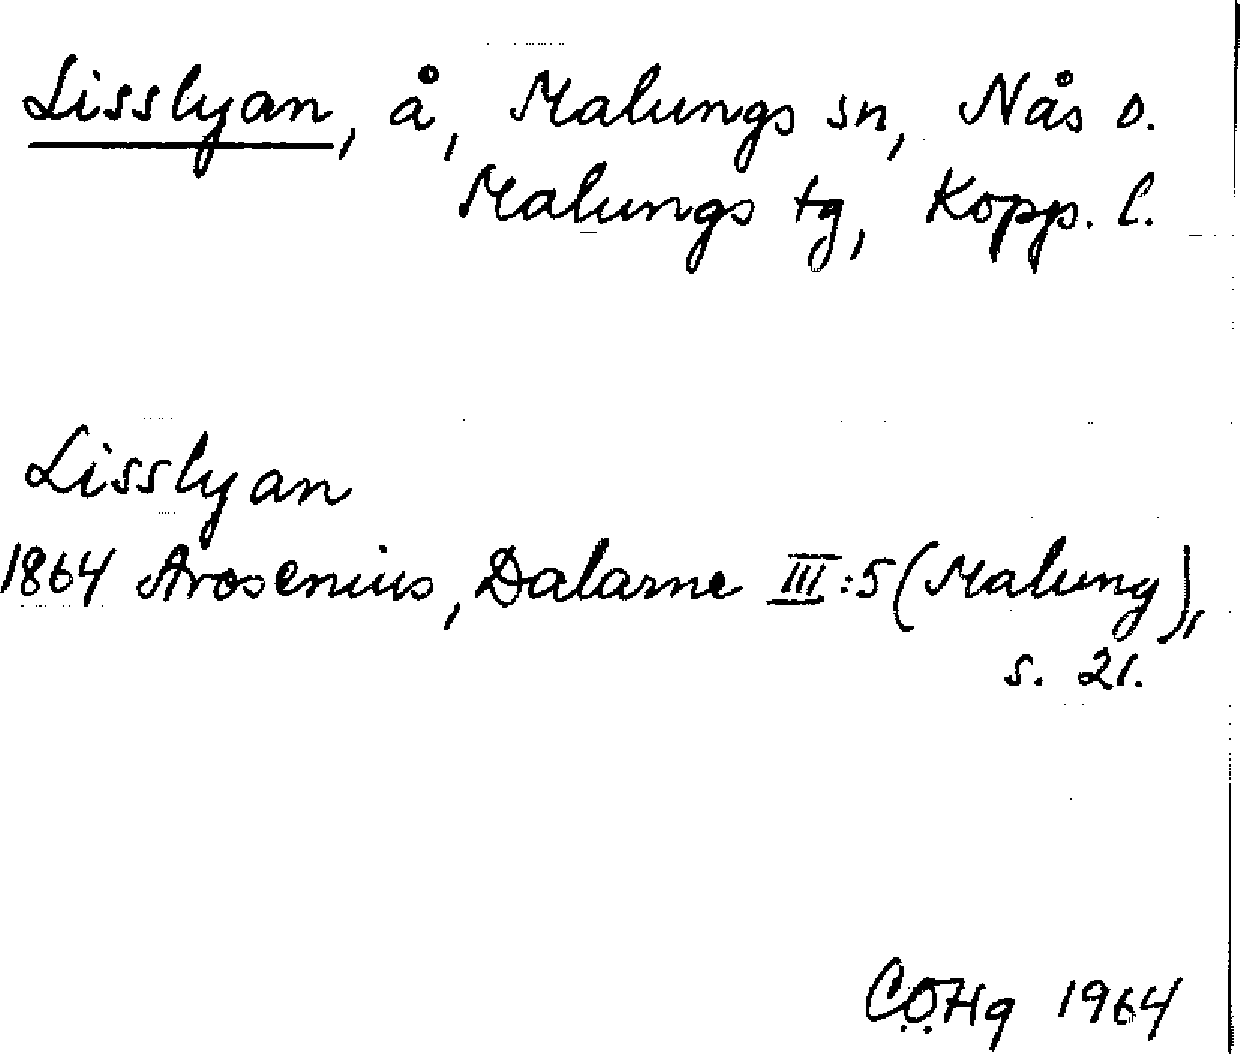 Lisslyan, å, Malungs sn, Nås o.
Malungs tg, Kopp. l.
Lisslyan
1864 Arosenius, Dalarne III:5 (Malung),
s. 21.
CÖHg 1964